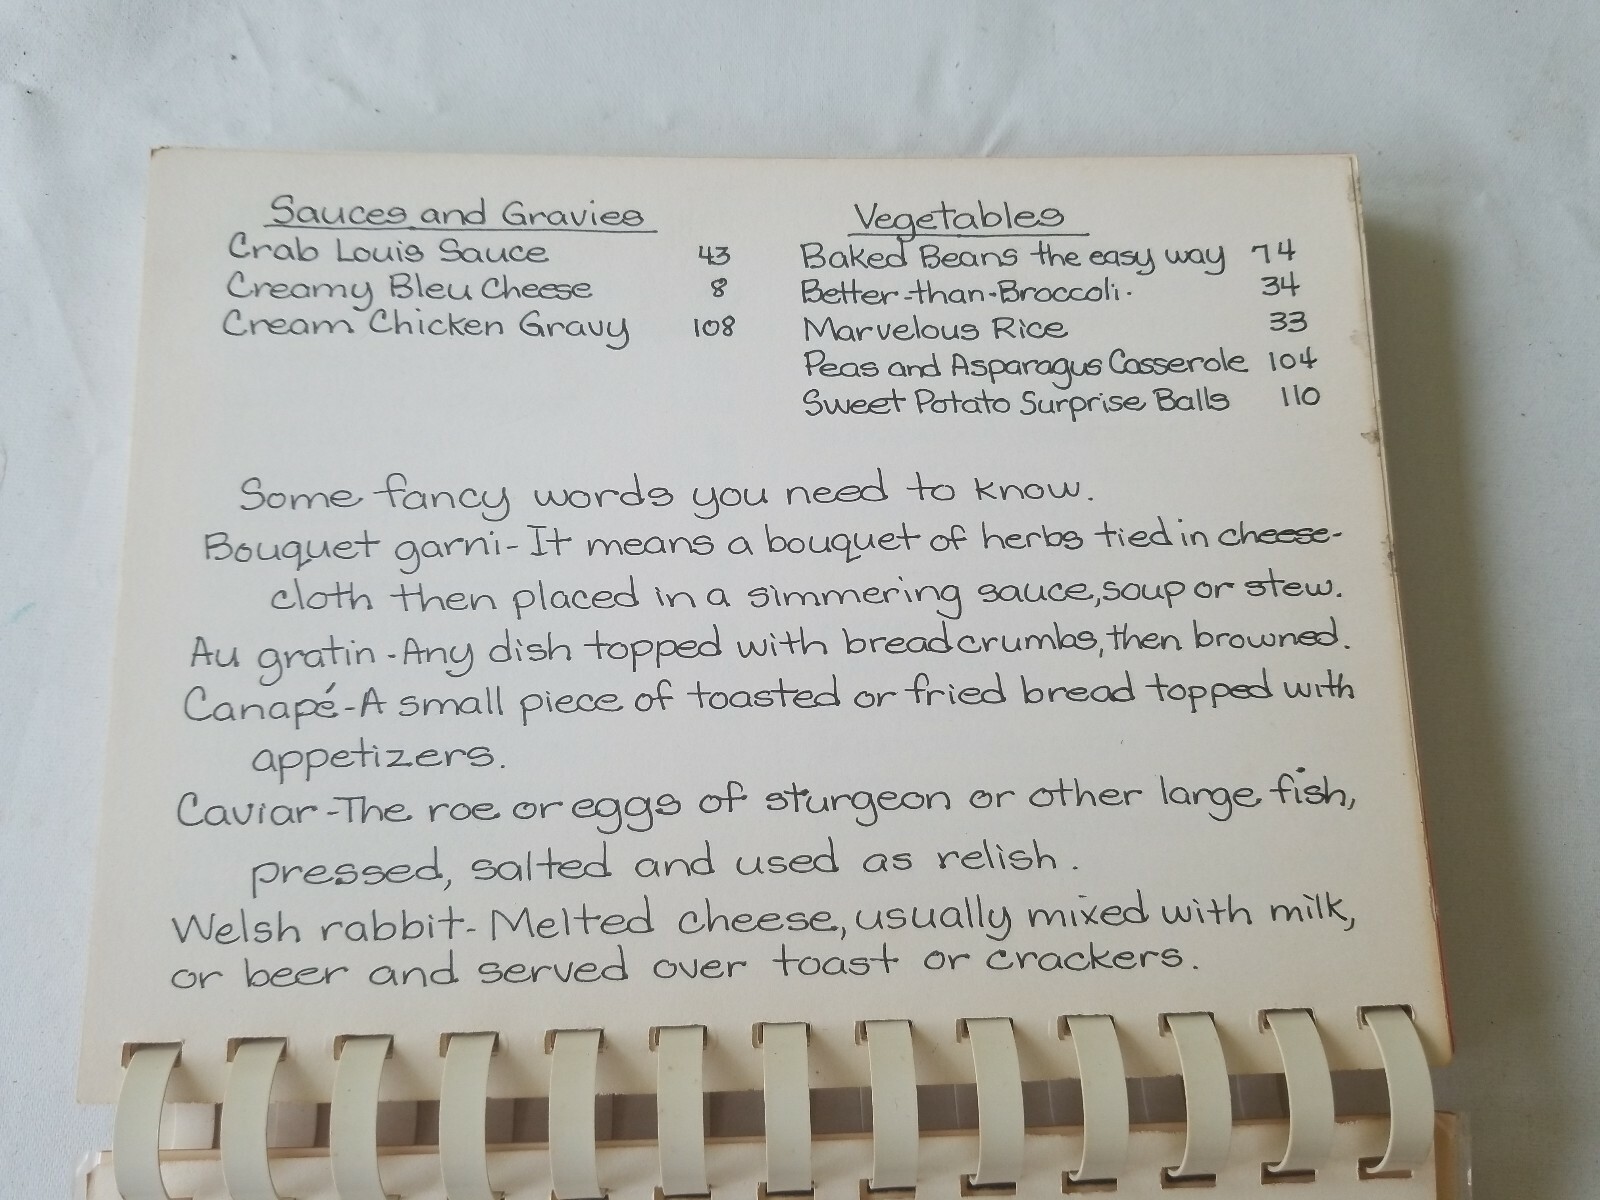 Sauces and Gravies
Crab Louis Sauce 43
Creamy Bleu Cheese 8
Cream Chicken Gravy 108
Vegetables
Baked Beans the easy way 74
Better-than-Broccoli. 34
Marvelous Rice 33
Peas and Asparagus Casserole 104
Sweet Potato Surprise Balls 110
Some fancy words you need to know.
Bouquet garni - It means a bouquet of herbs tied in cheese-
cloth then placed in a simmering sauce, soup or stew.
Au gratin - Any dish topped with bread crumbs, then browned.
Canapé - A small piece of toasted or fried bread topped with
appetizers.
Caviar - The roe or eggs of sturgeon or other large fish,
pressed, salted and used as relish.
Welsh rabbit - Melted cheese, usually mixed with milk,
or beer and served over toast or crackers.